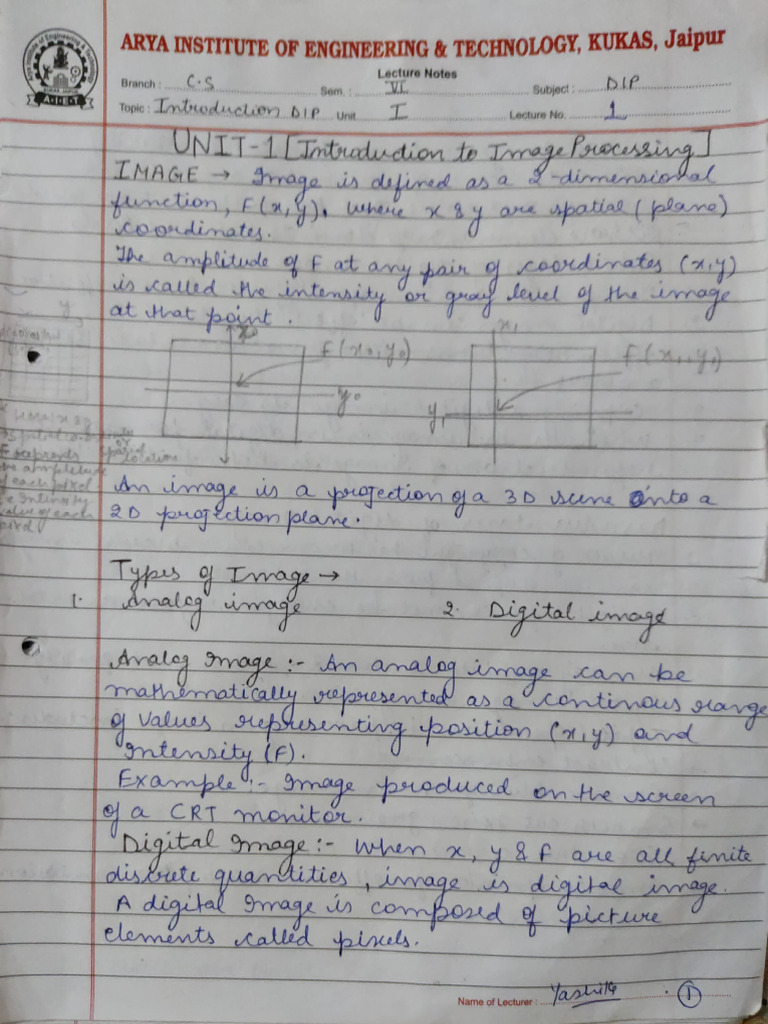 ARYA INSTITUTE OF ENGINEERING & TECHNOLOGY, KUKAS, Jaipur
Lecture Notes
Branch : C.S Sem. : VI Subject : DIP
Topic : Introduction DIP Unit I Lecture No. 1
UNIT-1 [Introduction to Image Processing]
IMAGE → Image is defined as a 2-dimensional
function, F(x,y), where x & y are spatial (plane)
coordinates.
The amplitude of F at any pair of coordinates (x,y)
is called the intensity or gray level of the image
at that point.
x0 f(x0,y0) y0
x1 f(x1,y1) y1
spatial
location
of each pixel
or Intensity
value of each
pixel
An image is a projection of a 3D scene onto a
2D projection plane.
Types of Image →
1. Analog image 2. Digital image
Analog Image :- An analog image can be
mathematically represented as a continous range
of values representing position (x,y) and
intensity (F).
Example :- Image produced on the screen
of a CRT monitor.
Digital Image :- When x, y & F are all finite
discrete quantities, image is digital image.
A digital Image is composed of picture
elements called pixels.
Name of Lecturer : Yashika 1